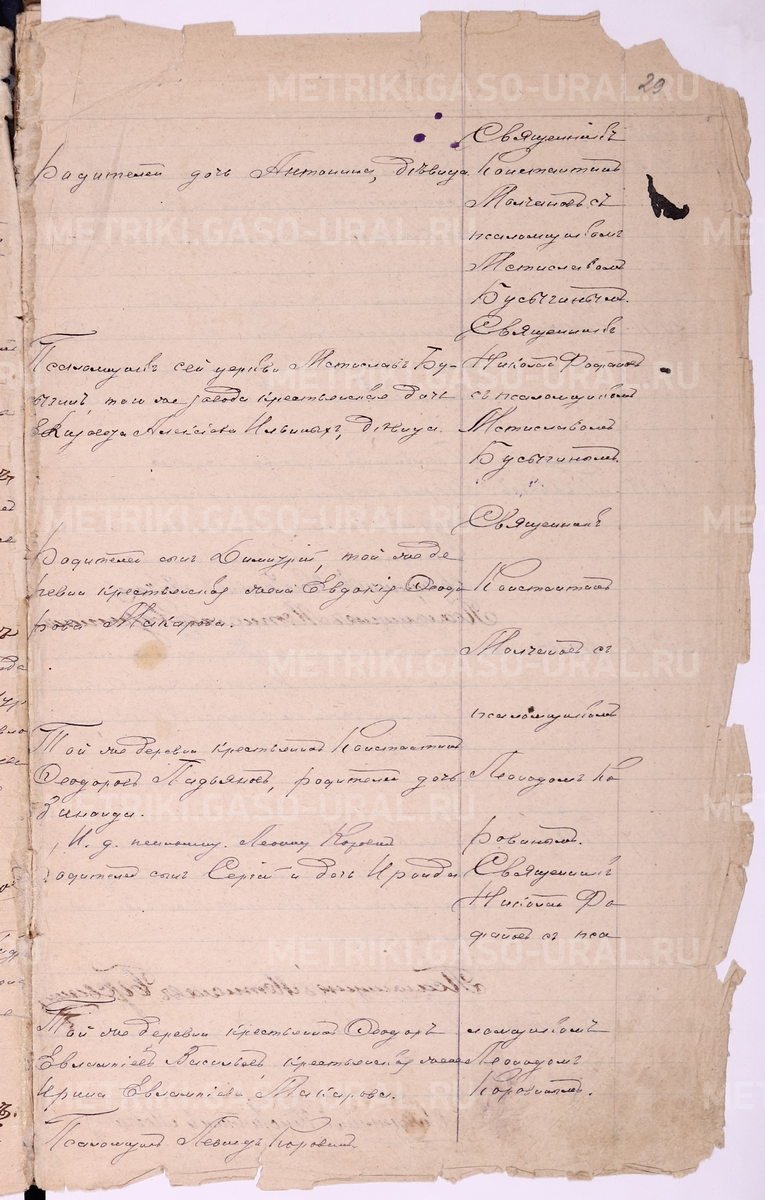 29
Священникъ
родителей дочь Антонина, дѣвица.
Константинъ
Молчановъ съ
псаломщикомъ
Мстиславомъ
Бусыгинымъ.
Псаломщикъ сей церкви Мстиславъ Бу-
сыгинъ, того же завода крестьянская дочь
Алексѣева Ильиныхъ, дѣвица.
Священникъ
Николай
съ псаломщикомъ
Мстиславомъ
Бусыгинымъ.
родителей сынъ Димитрій, той же де
ревни крестьянская жена Евдокія Ѳеодо
рова Макарова.
Священникъ
Константинъ
Молчановъ съ
псаломщикомъ
Леонидомъ Ко
ровинымъ.
Той же деревни крестьянинъ Константинъ
Ѳеодоровъ родителей дочь
Зинаида.
И. д. псаломщ. Леонид Коровин
родителей сынъ Сергій и дочь Ираида
Священникъ
Николай
съ пса
ломщикомъ
Леонидомъ
Коровинымъ.
Той же деревни крестьянинъ Ѳеодоръ
Евлампіевъ Васильевъ, крестьянская жена
Ирина Евлампіева Макарова.
Псаломщикъ Леонидъ Коровинъ
METRIKI.GASO-URAL.RU